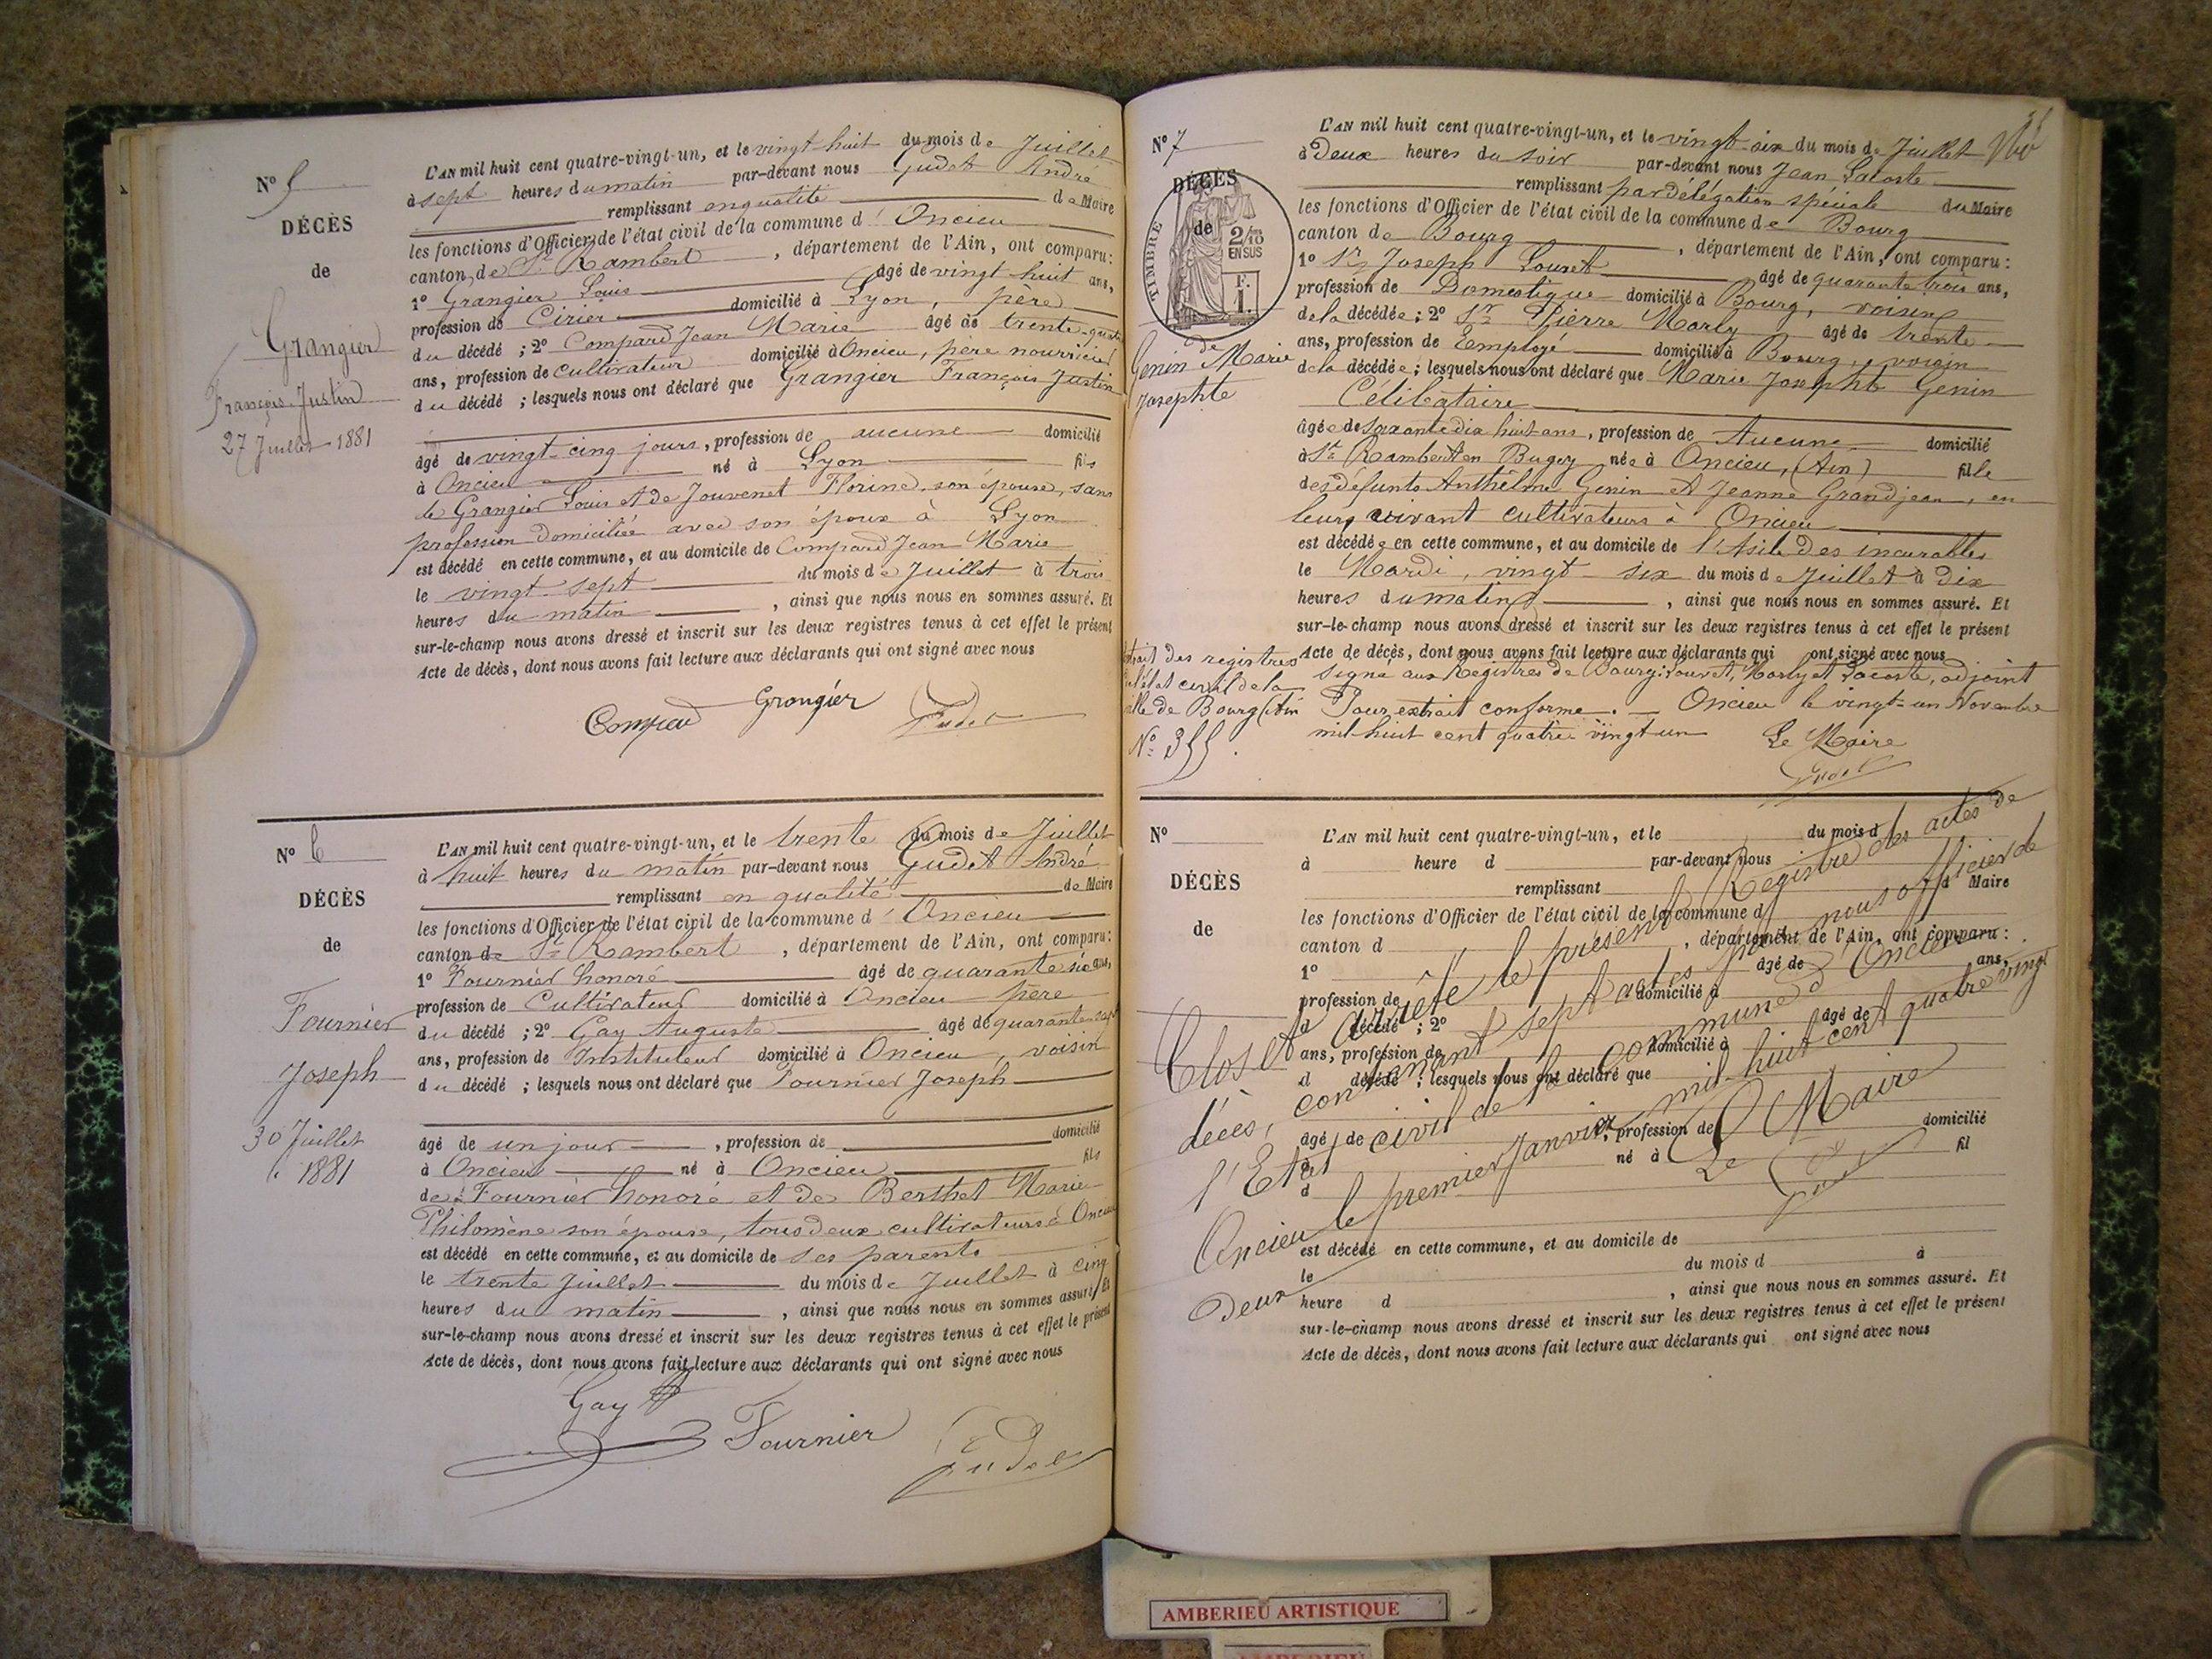 N° 5
DÉCÈS
de
Grangier
François Justin
27 Juillet 1881
L'AN mil huit cent quatre-vingt-un, et le vingt-huit du mois de Juillet
à sept heures du matin par-devant nous Gudet André
remplissant en qualité de Maire
les fonctions d'Officier de l'état civil de la commune d' Oncieu
canton de St Rambert , département de l'Ain, ont comparu:
1° Grangier Louis âgé de vingt huit ans,
profession de Cirier domicilié à Lyon, père
du décédé ; 2° Compard Jean Marie âgé de trente-quatre
ans, profession de cultivateur domicilié à Oncieu, père nourricier
du décédé ; lesquels nous ont déclaré que Grangier François Justin
âgé de vingt-cinq jours, profession de aucune domicilié
à Oncieu né à Lyon fils
de Grangier Louis et de Jouvenet Florine, son épouse, sans
profession domiciliée avec son époux à Lyon
est décédé en cette commune, et au domicile de Compard Jean Marie
le vingt-sept du mois de Juillet à trois
heures du matin , ainsi que nous nous en sommes assuré. Et
sur-le-champ nous avons dressé et inscrit sur les deux registres tenus à cet effet le présent
Acte de décès, dont nous avons fait lecture aux déclarants qui ont signé avec nous
Grangier
Gudet
N° 6
DÉCÈS
de
Fournier
Joseph
30 Juillet
1881
L'AN mil huit cent quatre-vingt-un, et le trente du mois de Juillet
à huit heures du matin par-devant nous Gudet André
remplissant en qualité de Maire
les fonctions d'Officier de l'état civil de la commune d' Oncieu
canton de St Rambert , département de l'Ain, ont comparu:
1° Fournier honoré âgé de quarante six ans,
profession de Cultivateur domicilié à Oncieu père
du décédé ; 2° Gay Auguste âgé de quarante sept
ans, profession de Instituteur domicilié à Oncieu, voisin
du décédé ; lesquels nous ont déclaré que Fournier Joseph
âgé de un jour , profession de domicilié
à Oncieu né à Oncieu fils
de Fournier honoré et de Berthet Marie
Philomène son épouse, tous deux cultivateurs à Oncieu
est décédé en cette commune, et au domicile de ses parents
le trente Juillet du mois de Juillet à cinq
heures du matin , ainsi que nous nous en sommes assuré. Et
sur-le-champ nous avons dressé et inscrit sur les deux registres tenus à cet effet le présent
Acte de décès, dont nous avons fait lecture aux déclarants qui ont signé avec nous
Gay
Fournier
Gudet
N° 7
DÉCÈS
de
TIMBRE
2/10
EN SUS
F.
1.
de
Genin Marie
Josephte
L'AN mil huit cent quatre-vingt-un, et le vingt-six du mois de Juillet
à Deux heures du soir par-devant nous Jean Lacoste
remplissant par délégation spéciale du Maire
les fonctions d'Officier de l'état civil de la commune de Bourg
canton de Bourg , département de l'Ain, ont comparu:
1° Sr Joseph Louvet âgé de quarante trois ans,
profession de Domestique domicilié à Bourg, voisin
de la décédée ; 2° Sr Pierre Morly âgé de trente
ans, profession de Employé domicilié à Bourg, voisin
de la décédée ; lesquels nous ont déclaré que Marie Josephte Genin
Célibataire
âgée de soixante dix huit ans, profession de Aucune domicilié
à St Rambert en Bugey née à Oncieu, (Ain) fille
des défunts Anthelme Genin et Jeanne Grandjean, en
leurs vivant cultivateurs à Oncieu
est décédée en cette commune, et au domicile de l'Asile des incurables
le Mardi, vingt-six du mois de Juillet à dix
heures du matin , ainsi que nous nous en sommes assuré. Et
sur-le-champ nous avons dressé et inscrit sur les deux registres tenus à cet effet le présent
Acte de décès, dont nous avons fait lecture aux déclarants qui ont signé avec nous
signé aux Registres de Bourg: Louvet, Morly et Lacoste, adjoint
Pour extrait conforme. — Oncieu le vingt-un Novembre
mil huit cent quatre vingt un Le Maire
Gudet
des registres
état civil de la
de Bourg (Ain
N° 355.
N°
DÉCÈS
de
L'AN mil huit cent quatre-vingt-un, et le du mois d
à heure d par-devant nous
remplissant d Maire
les fonctions d'Officier de l'état civil de la commune d
canton d , département de l'Ain, ont comparu:
1° âgé de ans,
profession de domicilié à
d décédé ; 2° âgé de
ans, profession de domicilié à
d décédé ; lesquels nous ont déclaré que
âgé de , profession de domicilié
à né à fil
d
est décédé en cette commune, et au domicile de
le du mois d à
heure d , ainsi que nous nous en sommes assuré. Et
sur-le-champ nous avons dressé et inscrit sur les deux registres tenus à cet effet le présent
Acte de décès, dont nous avons fait lecture aux déclarants qui ont signé avec nous
Clos et arrêté le présent Registre des actes de
décès, contenant sept actes par nous officier de
l'Etat civil de la commune d'Oncieu
Oncieu le premier Janvier mil huit cent quatre vingt
Deux
Le Maire
Gudet
AMBERIEU ARTISTIQUE
AMBERIEU